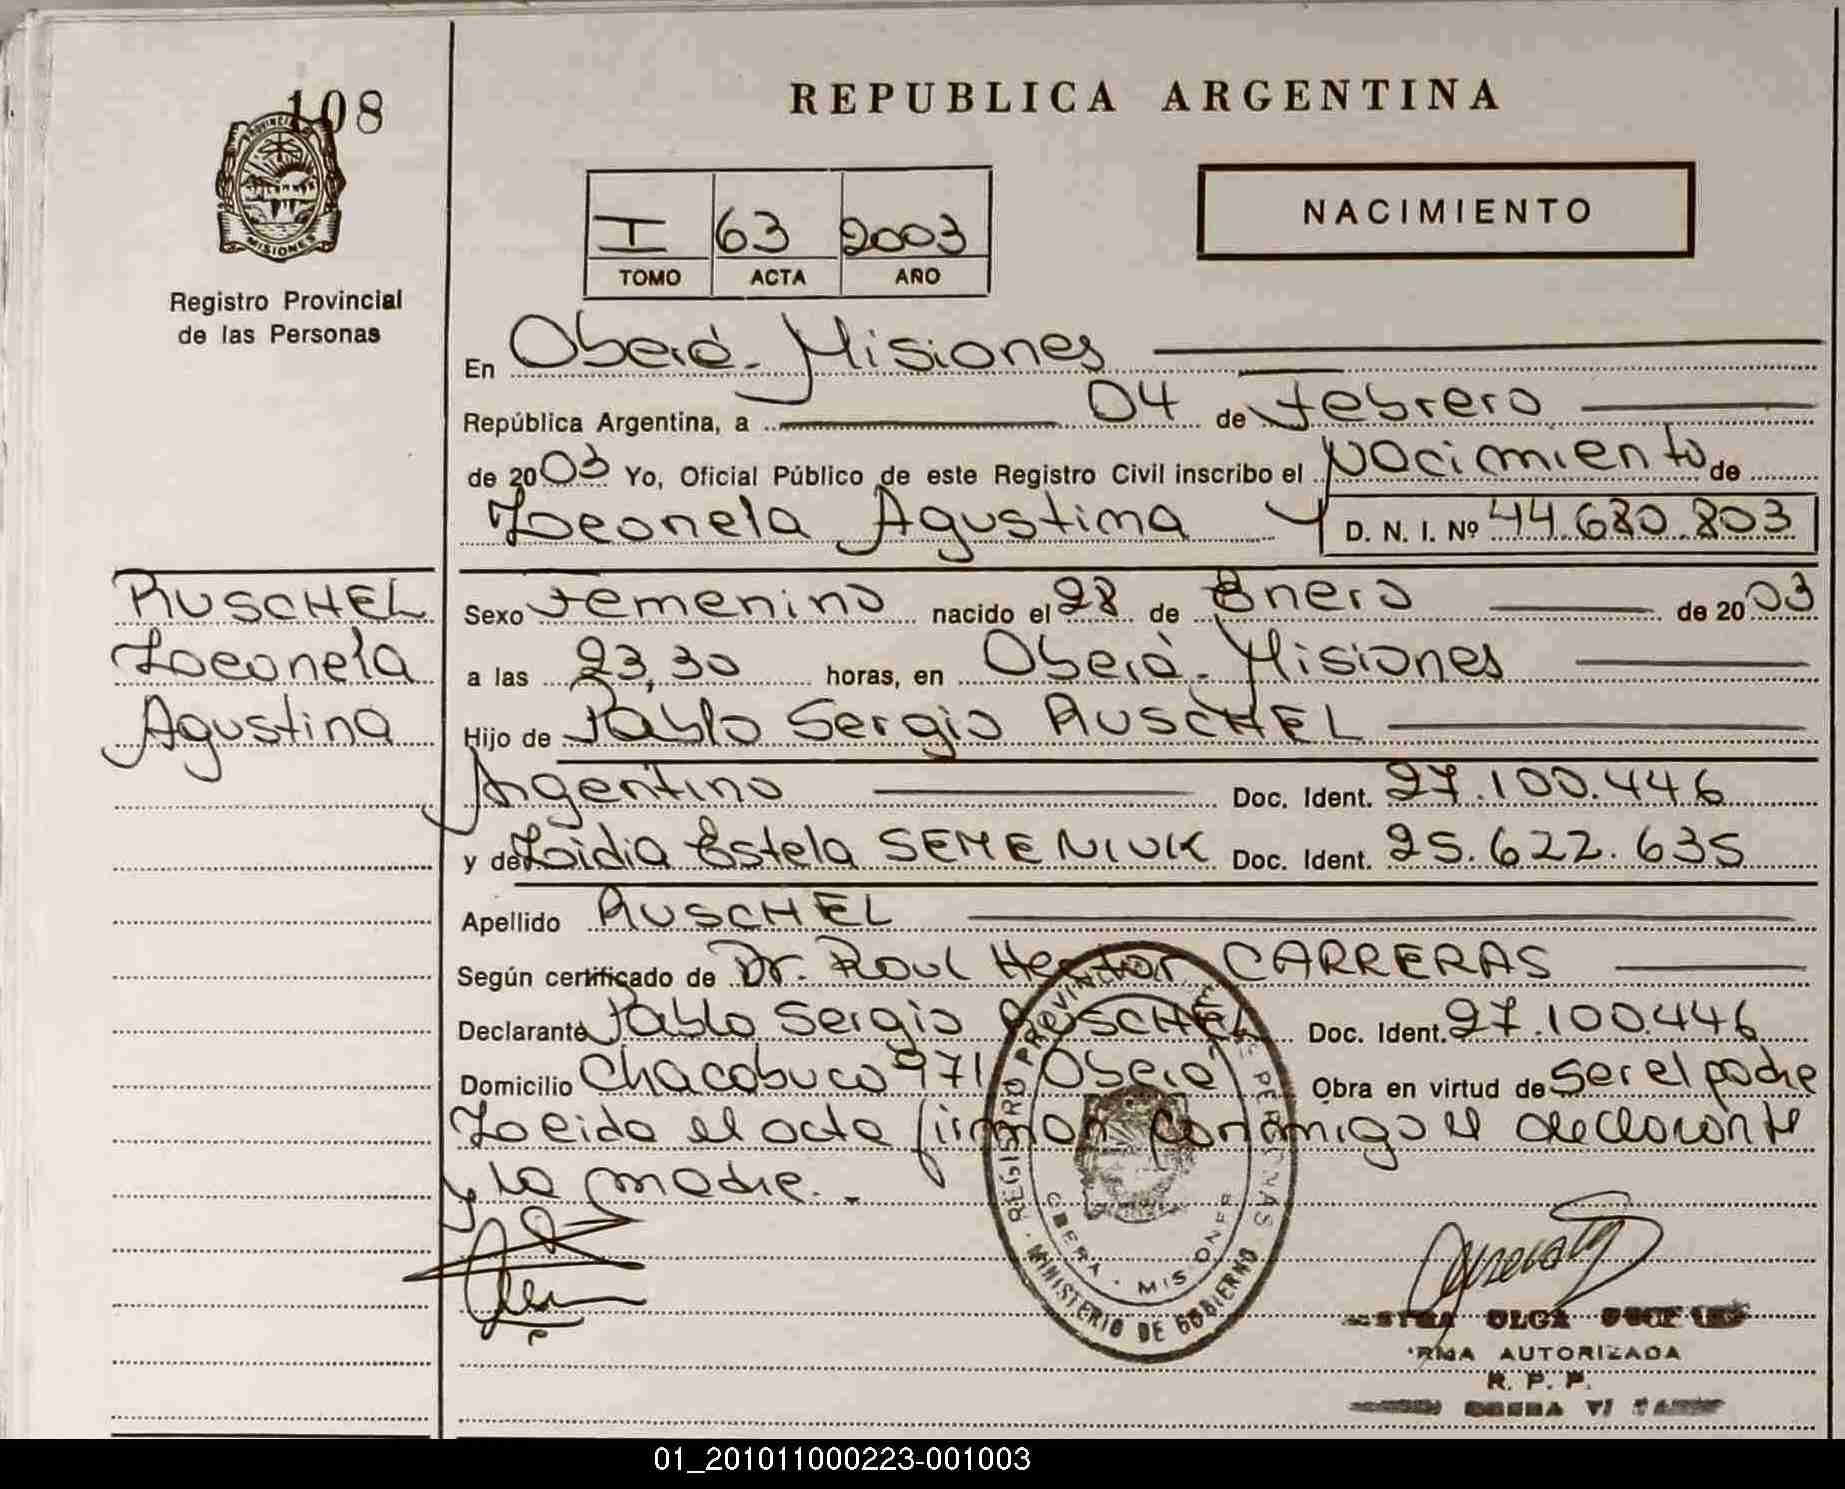 108
REPUBLICA ARGENTINA
PROVINCIA
MISIONES
Registro Provincial
de las Personas
I 63 2003
TOMO ACTA AÑO
NACIMIENTO
En Oberá - Misiones
República Argentina, a 04 de Febrero
de 2003 Yo, Oficial Público de este Registro Civil inscribo el Nacimiento de
Leonela Agustina D. N. I. Nº 44.680.803
RUSCHEL
Leonela
Agustina
Sexo Femenino nacido el 28 de Enero de 2003
a las 23,30 horas, en Oberá - Misiones
Hijo de Pablo Sergio RUSCHEL
Argentino Doc. Ident. 27.100.446
y de Lidia Estela SEMENIUK Doc. Ident. 25.622.635
Apellido RUSCHEL
Según certificado de Dr. Raul Hector CARRERAS
Declarante Pablo Sergio RUSCHEL Doc. Ident. 27.100.446
Domicilio Chacabuco 971 Oberá Obra en virtud de ser el padre
Leida el acta firman conmigo el declarante
y la madre.-
REGISTRO PROVINCIAL DE LAS PERSONAS
OBERA - MISIONES
MINISTERIO DE GOBIERNO
OLGA
FIRMA AUTORIZADA
R. P. P.
01_201011000223-001003